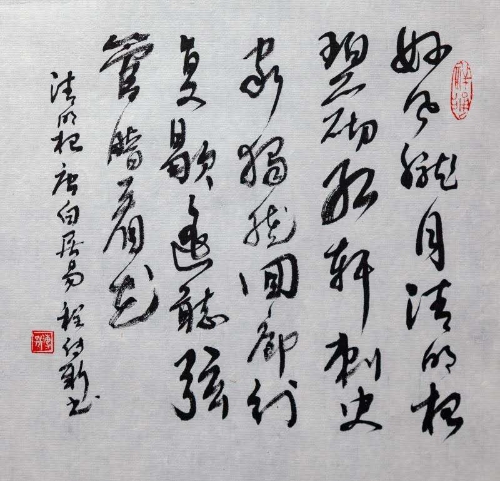 好风朧月清明夜
碧砌红軒刺史
家獨绕回廊行
复歇遥聽弦
管暗看花
清明夜 唐白居易 程